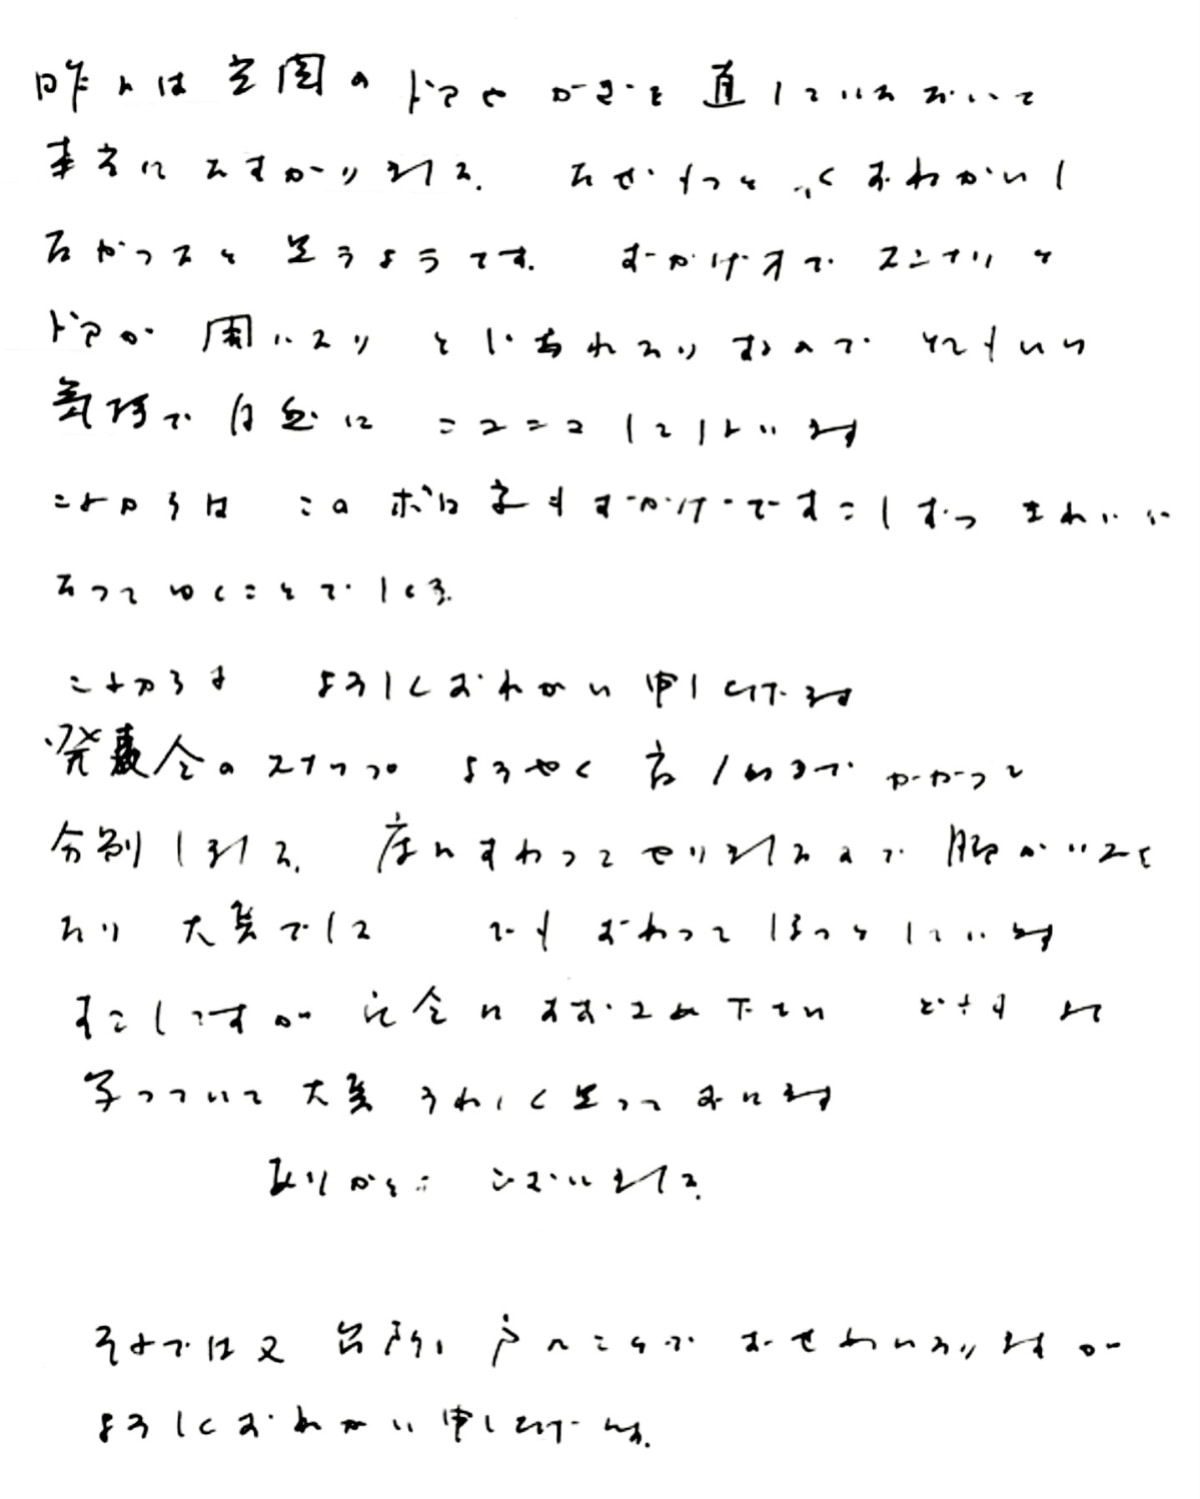 昨日は玄関のドアやかぎを直していただいて
本当にたすかりました。なぜもっと早くおねがいし
なかったと思うようです。おかげ様でスンナリと
ドアが開いたり とじられたりするので とてもいい
気持で自然に ニコニコしてしまいます
これからは このボロ家もおかげですこしずつ きれいに
なってゆくことでしょう。
これからも よろしくおねがい申し上げます
発表会のスナップ ようやく 夜 までかかって
分別しました。床にすわってやりましたので 腰がいたく
なり 大変でした でも おわってほっとしています
すこしですが 記念におおさめ下さい どれもよく
写っていて 大変うれしく思っております
ありがとうございました。
それでは又 台所の戸のことで おせわになりますが
よろしくおねがい申し上げます。